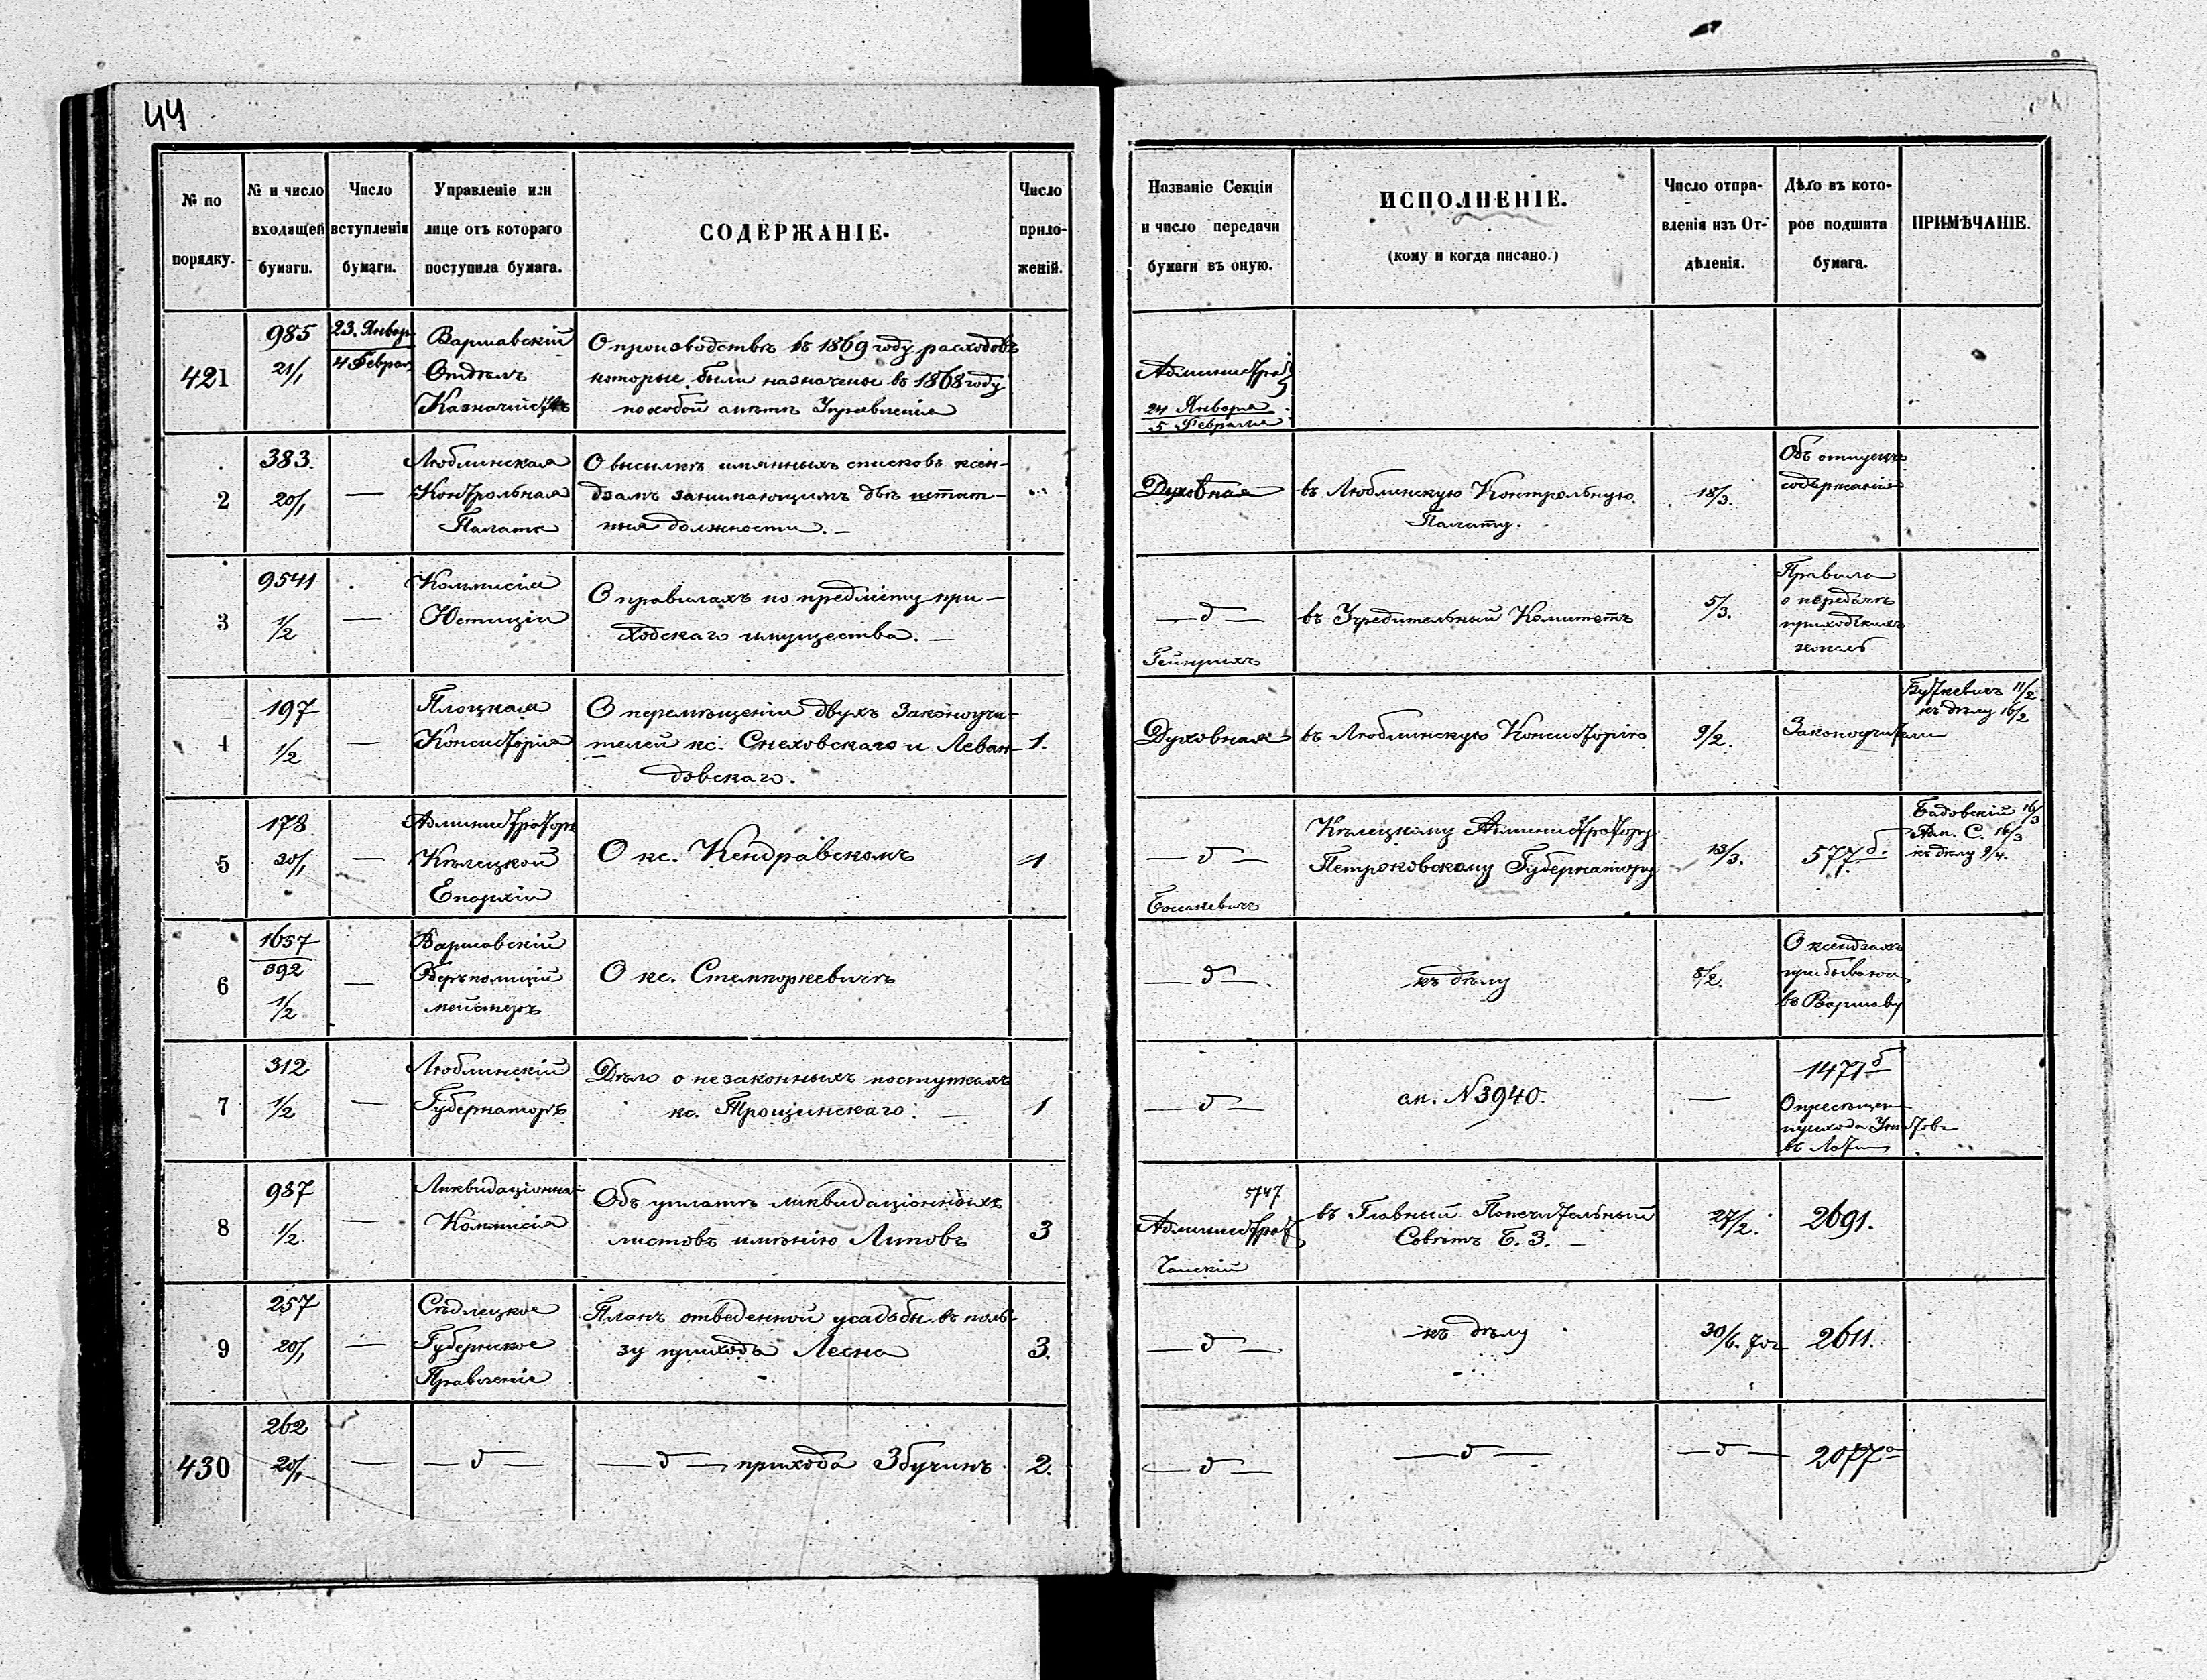 44
№ по порядку.
№ и число входящей бумаги.
Число вступленія бумаги.
Управленіе или лице отъ котораго поступила бумага.
СОДЕРЖАНІЕ.
Число приложеній.
Названіе Секціи и число передачи бумаги въ оную.
ИСПОЛНЕНІЕ.
(кому и когда писано.)
Число отправленія изъ Отдѣленія.
Дѣло въ которое подшита бумага.
ПРИМѢЧАНІЕ.
421
985
21/1
23. Январ
4 Феврал
Варшавскій
Отдѣлъ
Казначейства
О производствѣ въ 1869 году расходовъ
которые были назначены въ 1868 году
по особой смѣтѣ Управленія
Администрат
24 Января
5 Февраля
2
383.
20/1
—
Люблинская
Контрольная
Палата
О высылкѣ имянныхъ списковъ ксен-
дзамъ занимающимъ двѣ штат-
ныя должности. —
Духовная
въ Люблинскую Контрольную
Палату.
18/3.
Объ отпускѣ
содержанія
3
9541
1/2
—
Коммисія
Юстиціи
О правилахъ по предмету при-
ходскаго имущества. —
— д —
Гейнрихъ
въ Учредительный Комитетъ
5/3.
Правила
о передачѣ
приходскихъ
земель
4
197
1/2
—
Плоцкая
Консисторія
О перемѣщеніи двухъ Законоучи-
телей кс. Снеховскаго и Леван-
довскаго.
1.
Духовная
въ Люблинскую Консисторію
9/2.
Законоучители
Буткевичъ 11/2
къ дѣлу 16/2
5
178
30/1
—
Администраторъ
Кѣлецкой
Епархіи
О кс. Кендравскомъ
1
— д —
Кѣлецкому Администратору
Петроковскому Губернатору
13/3.
577 б.
16/3
Адм. С. 16/3
къ дѣлу 9/4.
6
1657
392
1/2
—
Варшавскій
Оберъ полицій
мейстеръ
О кс. Стемпоркевичѣ
— д —
къ дѣлу
8/2.
О ксендзахъ
прибываю
въ Варшаву
7
312
1/2
—
Люблинскій
Губернаторъ
Дѣло о незаконныхъ поступкахъ
кс. Трощинскаго. —
1
— д —
см. N 3940.
—
1471 б
прихода
въ
8
987
1/2
—
Ликвидаціонная
Коммисія
Объ уплатѣ ликвидаціонныхъ
листовъ имѣнію Липовъ
3
5747
Администрат
въ Главный Попечительный
Совѣтъ Б. З. —
27/2.
2691.
9
257
20/1
—
Сѣдлецкое
Губернское
Правленіе
Планъ отведенной усадьбы въ поль-
зу прихода Лесна
3.
— д —
къ дѣлу
30/6. 70 г
2611.
430
262
20/1
—
— д —
— д — прихода Збучинъ
2.
— д —
— д —
— д —
2077 а